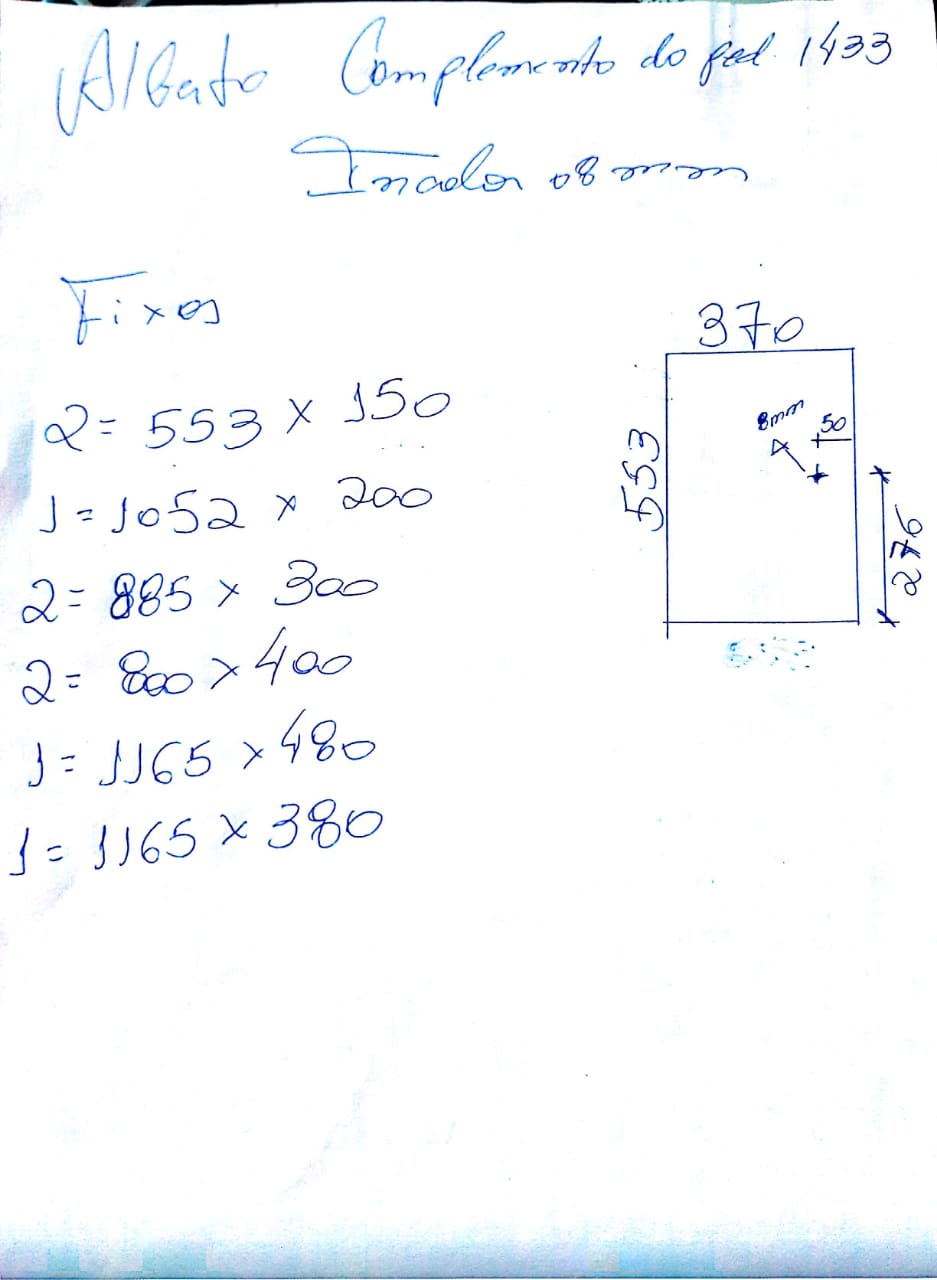 Albato Complemento do ped. 1433
Incolor 08 mm
Fixos
2= 553 x 150
1= 1052 x 200
2= 885 x 300
2= 800 x 400
1= 1165 x 480
1= 1165 x 380
370
553
8mm
50
276